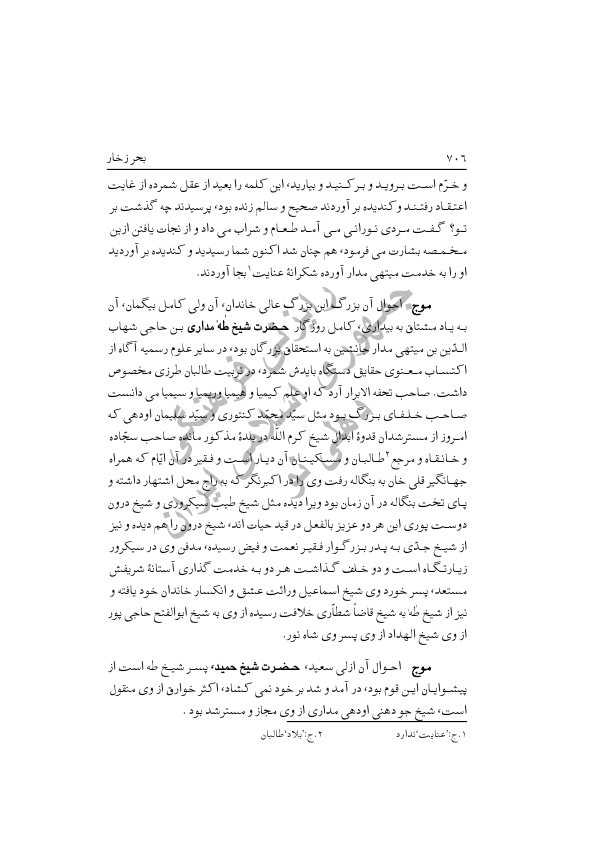 ۷۰۶ بحر زخار
و خرّم است بروید و بر کنید و بیارید، این کلمه را بعید از عقل شمرده از غایت
اعتقاد رفتند و کندیده بر آوردند صحیح و سالم زنده بود، پرسیدند چه گذشت بر
تو؟ گفت مردی نورانی می آمد طعام و شراب می داد و از نجات یافتن ازین
مخمصه بشارت می فرمود، هم چنان شد اکنون شما رسیدید و کندیده بر آوردید
او را به خدمت میتهی مدار آورده شکرانهٔ عنایت۱ بجا آوردند.
موج احوال آن بزرگ ابن بزرگ عالی خاندان، آن ولی کامل بیگمان، آن
به یاد مشتاق به بیداری، کامل روزگار حضرت شیخ طٰه مداری بن حاجی شهاب
الدّین بن میتهی مدار جانشین به استحقاق بزرگان بود، در سایر علوم رسمیه آگاه از
اکتساب معنوی حقایق دستگاه بایدش شمرد، در تربیت طالبان طرزی مخصوص
داشت. صاحب تحفه الابرار آرد که او علم کیمیا و هیمیا و ریمیا و سیمیا می دانست
صاحب خلفای بزرگ بود مثل سیّد محمّد کنتوری و سیّد سلیمان اودهی که
امروز از مسترشدان قدوهٔ ابدال شیخ کرم اللّه در بلدهٔ مذکور مانده صاحب سجّاده
و خانقاه و مرجع۲ طالبان و مسکینان آن دیار است و فقیر در آن ایّام که همراه
جهانگیر قلی خان به بنگاله رفت وی را در اکبرنگر که به راج محل اشتهار داشته و
پای تخت بنگاله در آن زمان بود ویرا دیده مثل شیخ طیب سیکروری و شیخ درون
دوست پوری این هر دو عزیز بالفعل در قید حیات اند، شیخ درون را هم دیده و نیز
از شیخ جدّی به پدر بزرگوار فقیر نعمت و فیض رسیده، مدفن وی در سیکرور
زیارتگاه است و دو خلف گذاشت هر دو به خدمت گذاری آستانهٔ شریفش
مستعد، پسر خورد وی شیخ اسماعیل وراثت عشق و انکسار خاندان خود یافته و
نیز از شیخ طٰه به شیخ قاضاً شطّاری خلافت رسیده از وی به شیخ ابوالفتح حاجی پور
از وی شیخ الهداد از وی پسر وی شاه نور.
موج احوال آن ازلی سعید، حضرت شیخ حمید، پسر شیخ طه است از
پیشوایان این قوم بود، در آمد و شد بر خود نمی کشاد، اکثر خوارق از وی منقول
است، شیخ جو دهنی اودهی مداری از وی مجاز و مسترشد بود .
۱.ج:'عنایت'ندارد ۲.ج:'بلاد'طالبان
رایزنی فرهنگی
جمهوری اسلامی ایران
دهلی نو